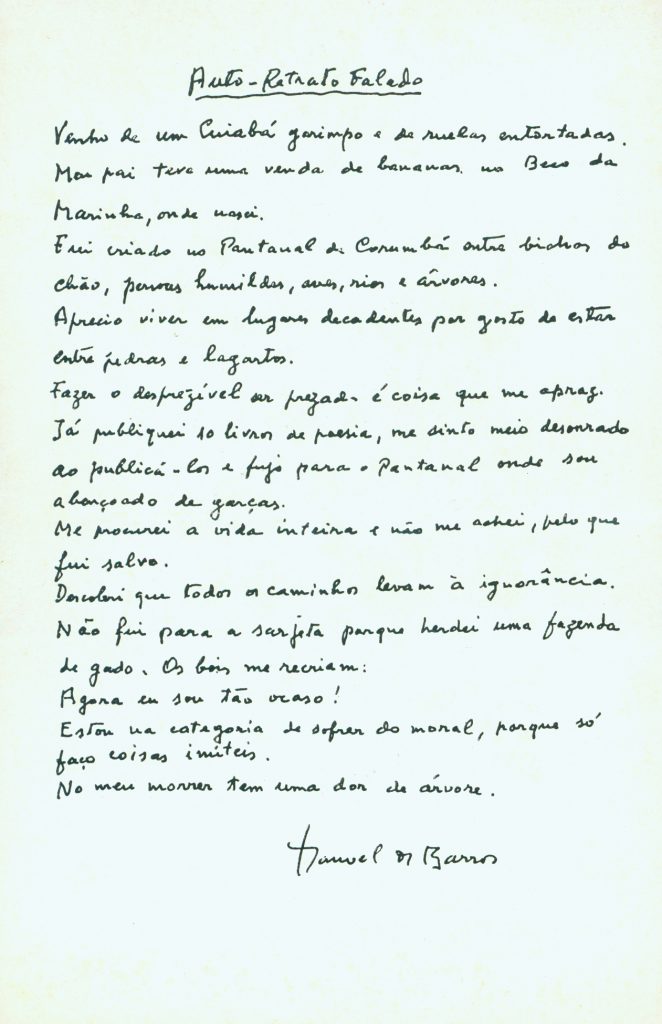 Auto-Retrato Falado
Venho de um Cuiabá garimpo e de ruelas entortadas.
Meu pai teve uma venda de bananas no Beco da
Marinha, onde nasci.
Fui criado no Pantanal de Corumbá entre bichos do
chão, pessoas humildes, aves, rios e árvores.
Aprecio viver em lugares decadentes por gosto de estar
entre pedras e lagartos.
Fazer o desprezível ser prezado é coisa que me apraz.
Já publiquei 10 livros de poesia, me sinto meio desonrado
ao publicá-los e fujo para o Pantanal onde sou
abençoado de garças.
Me procurei a vida inteira e não me achei, pelo que
fui salvo.
Descobri que todos os caminhos levam à ignorância.
Não fui para a sarjeta porque herdei uma fazenda
de gado. Os bois me recriam:
Agora eu sou tão ocaso!
Estou na categoria de sofrer do moral, porque só
faço coisas inúteis.
No meu morrer tem uma dor de árvore.
Manoel de Barros